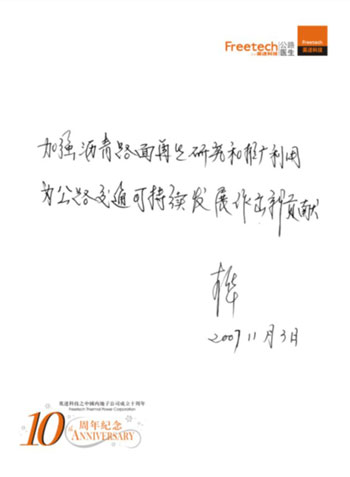 Freetech 公路医生 英达科技
英达科技
加强沥青路面再生研究和推广利用
为公路交通可持续发展作出新贡献
2007 11月3日
英達科技之中國內地子公司成立十周年
Freetech Thermal Power Corporation
10 周年纪念
ANNIVERSARY